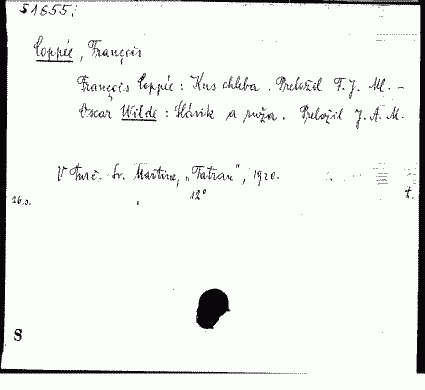 S1655.
Coppée, François
François Coppée: Kus chleba. Preložil F. J. Ml. –
Oscar Wilde: Slávik a ruža. Preložil J. A. M.
V Turč. Sv. Martine, „Tatran", 1920.
16 s. 12° t.
S